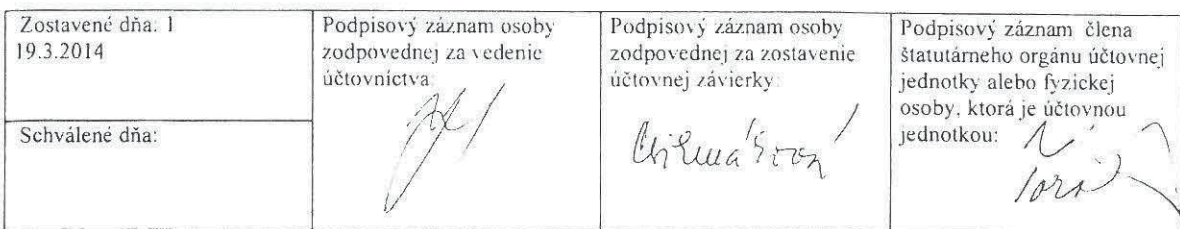 Zostavené dňa: 1
19.3.2014
Schválené dňa:
Podpisový záznam osoby
zodpovednej za vedenie
účtovníctva:
Podpisový záznam osoby
zodpovednej za zostavenie
účtovnej závierky:
Podpisový záznam člena
štatutárneho orgánu účtovnej
jednotky alebo fyzickej
osoby, ktorá je účtovnou
jednotkou: